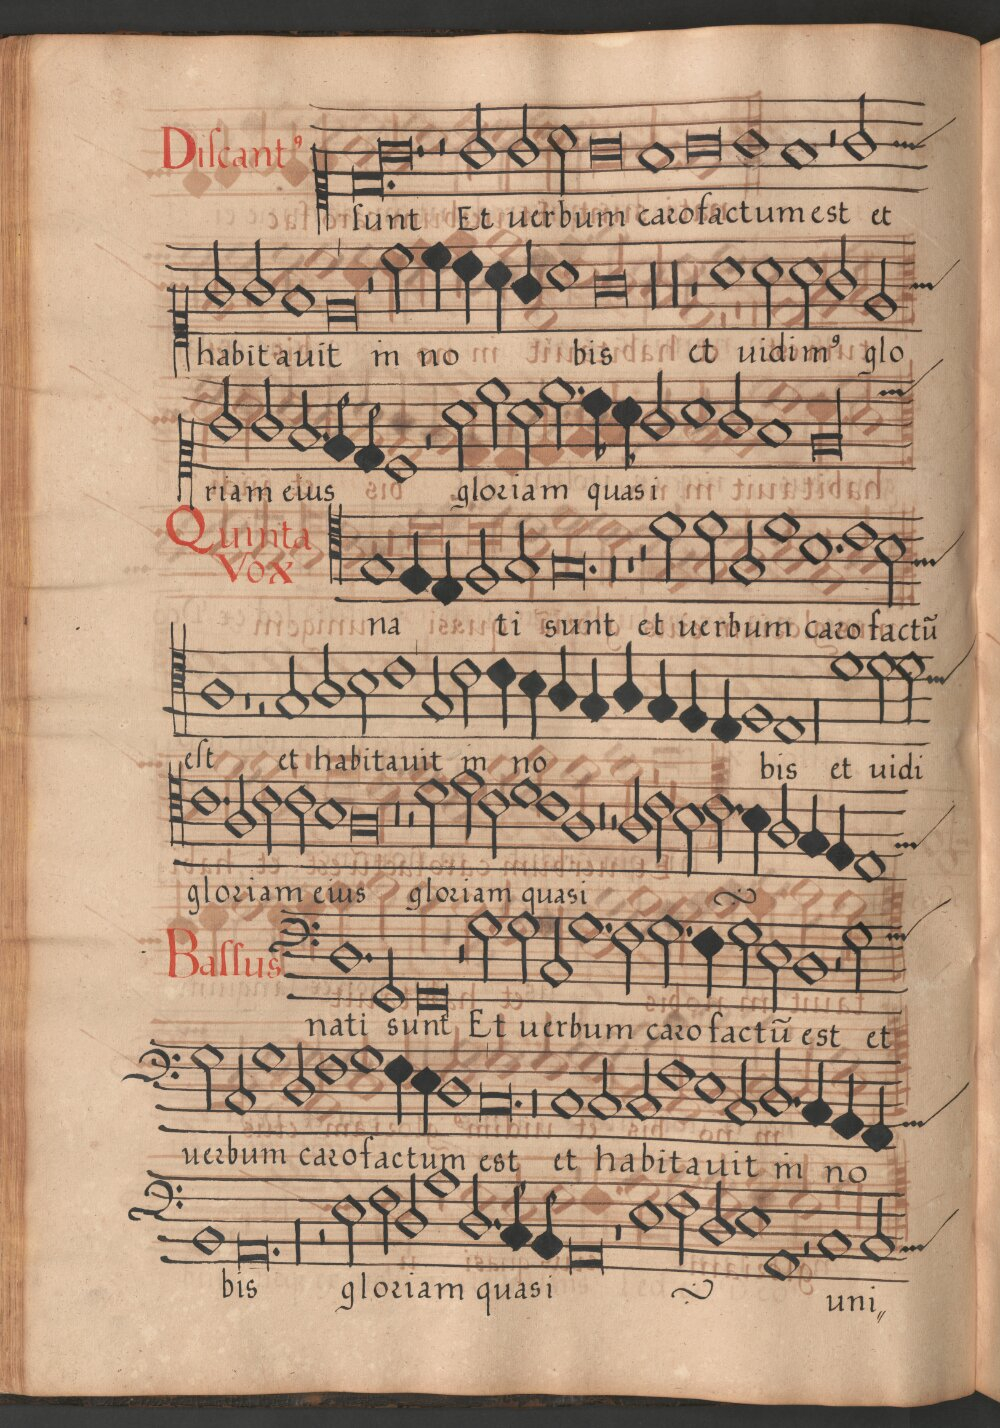 Diſcantꝰ
ſunt Et uerbum caro factum est et
habitauit in no bis et uidimꝰ glo
riam eius gloriam quasi
Quinta
Vox
na ti sunt et uerbum caro factū
eſt et habitauit in no bis et uidi
gloriam eius gloriam quasi
Baſſus
nati sunt Et uerbum caro factū est et
uerbum caro factum est et habitauit in no
bis gloriam quasi uni